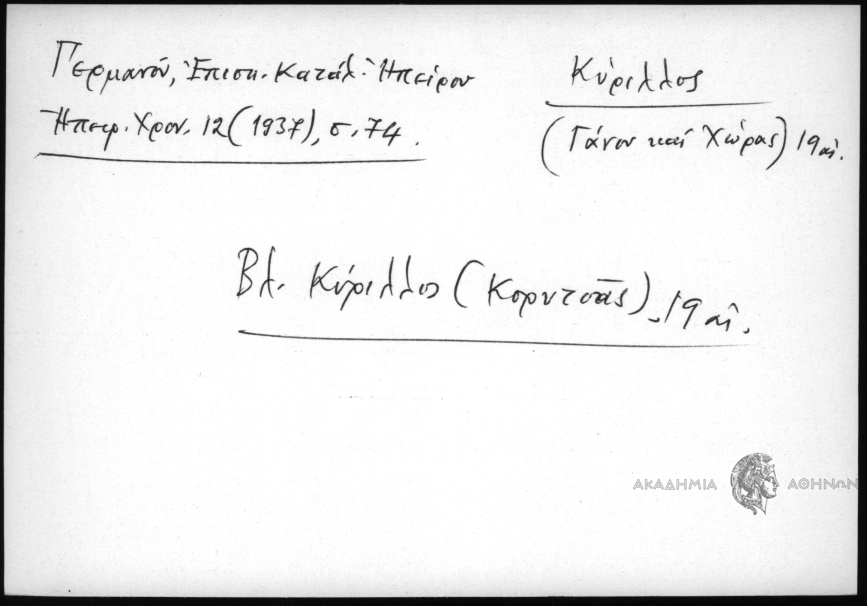 Γερμανού, Ἐπισκ. Κατάλ. Ἠπείρου
Ἠπειρ. Χρον. 12 (1937), σ. 74.
Κύριλλος
(Γάνου καί Χώρας) 19 αἰ.
Βλ. Κύριλλος (Κορυτσᾶς). 19 αἰ.
ΑΚΑΔΗΜΙΑ ΑΘΗΝΩΝ